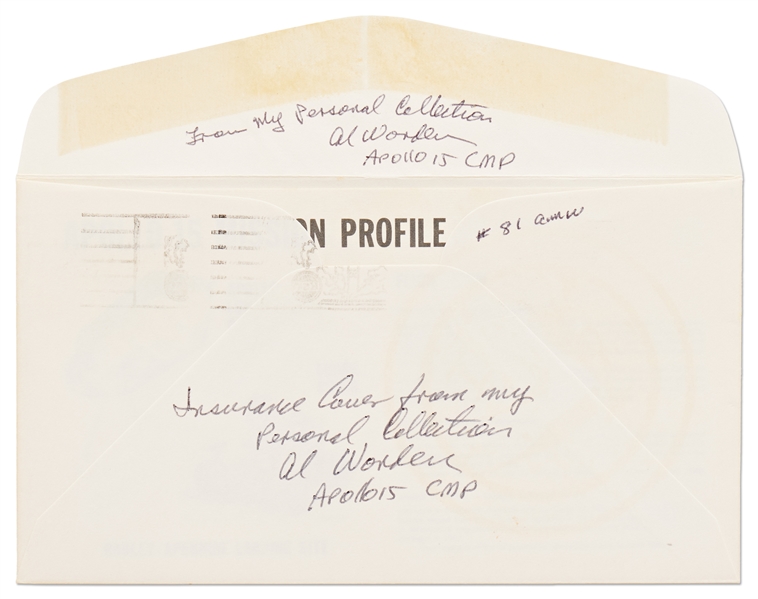 From My Personal Collection
Al Worden
APOLLO 15 CMP
ON PROFILE
# 81 amw
Insurance Cover from my
Personal Collection
Al Worden
APOLLO 15 CMP